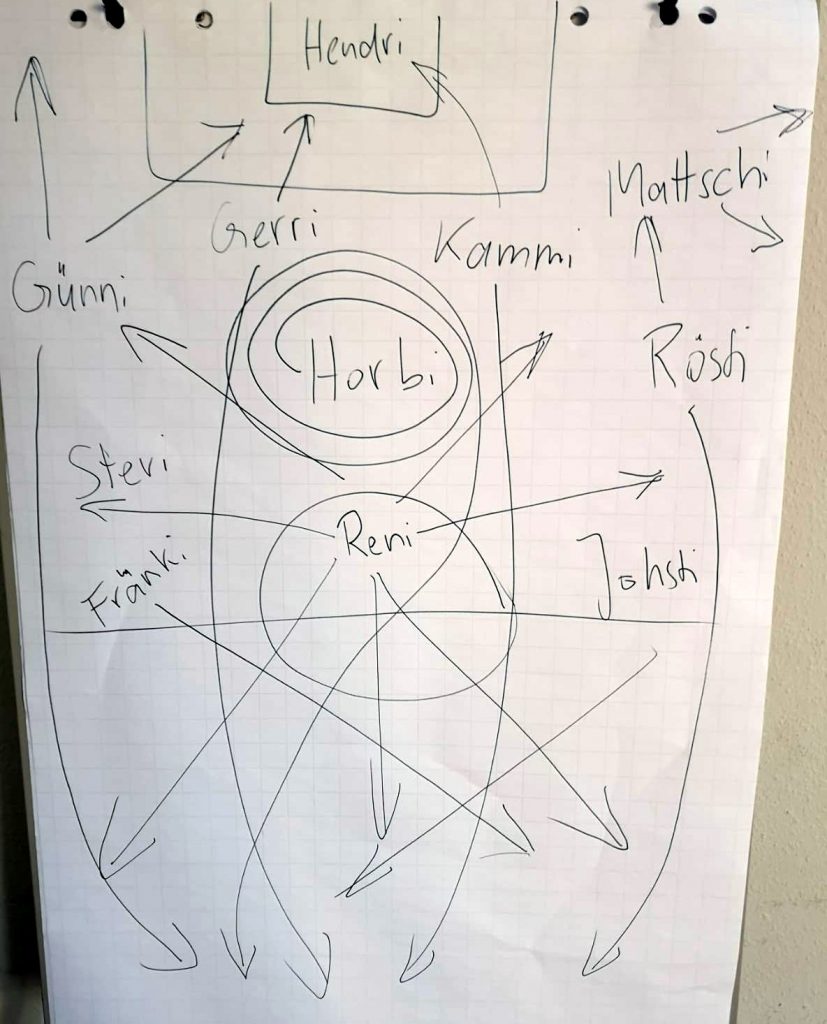 Hendri
Mattschi
Gerri
Kammi
Günni
Horbi
Rösti
Stevi
Reni
Fränki
Johsti